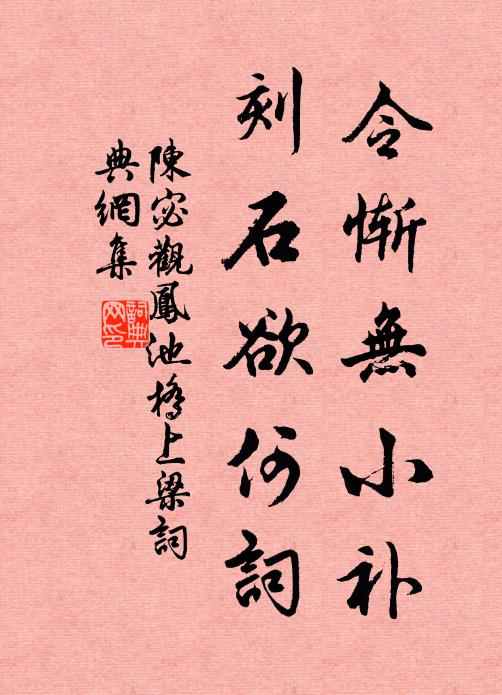 令慚無小补
刻石欲何詞
陳宓觀鳳池橋上梁詞
典網集
詞典
网印